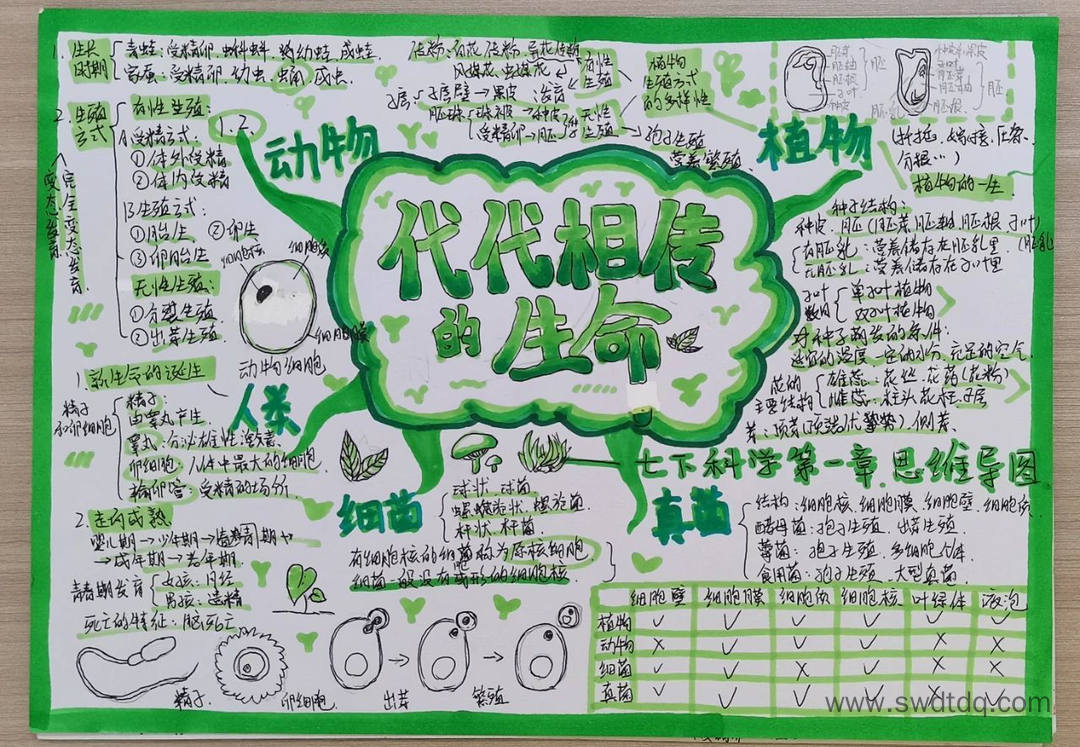 代代相传
的生命
动物
植物
人类
细菌
真菌
七下科学第一章思维导图
1. 生长时期
青蛙：受精卵、蝌蚪、幼蛙、成蛙
家蚕：受精卵、幼虫、蛹、成虫
2. 生殖方式
有性生殖：
A受精方式：
①体外受精
②体内受精
B生殖方式：
①胎生 ②卵生
③卵胎生
无性生殖：
①分裂生殖
②出芽生殖
完全变态发育
变态发育
1.2.
细胞核
细胞质
细胞膜
动物细胞
1. 新生命的诞生
精子和卵细胞
精子
由睾丸产生
睾丸：分泌雄性激素
卵细胞：人体中最大的细胞
输卵管：受精的场所
2. 走向成熟
婴儿期→少年期→青春期
→成年期→老年期
青春期发育
女孩：月经
男孩：遗精
死亡的特征：脑死亡
精子
卵细胞
出芽
繁殖
传粉：自花传粉、异花传粉
风媒花、虫媒花
子房
子房壁→果皮
发育
胚珠
珠被→种皮
受精卵→胚
种子
有性生殖
无性生殖
孢子生殖
营养繁殖
植物生殖方式的多样性
(扦插、嫁接、压条、
分根…)
植物的一生
胚芽
胚轴
胚根
子叶
种皮
胚
胚乳
种子结构：
种皮、胚(胚芽 胚轴 胚根 子叶) (胚乳)
有胚乳：营养储存在胚乳里
无胚乳：营养储存在子叶里
子叶数目
单子叶植物
双子叶植物
种子萌发的条件：
适宜的温度、一定的水分、充足的空气
花的主要结构
雄蕊：花丝、花药(花粉)
雌蕊：柱头、花柱、子房
芽：顶芽(顶端优势)、侧芽
球状、球菌
螺旋状、螺旋菌
杆状、杆菌
细菌一般没有成形的细胞核
结构：细胞核、细胞膜、细胞壁、细胞质
酵母菌：孢子生殖、出芽生殖
霉菌：孢子生殖、多细胞个体
食用菌：孢子生殖、大型真菌
细胞壁 细胞膜 细胞质 细胞核 叶绿体 液泡
植物 ✓ ✓ ✓ ✓ ✓ ✓
动物 × ✓ ✓ ✓ × ×
细菌 ✓ ✓ × ✓ × ×
真菌 ✓ ✓ ✓ ✓ × ✓
www.swdtdq.com